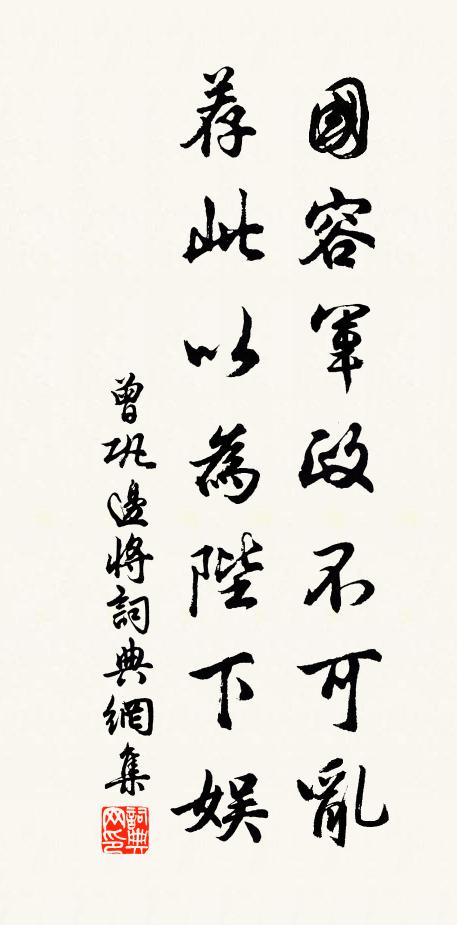 國容軍政不可亂
荐此以為陛下娱
曾巩邊將詞典網集
詞典网印